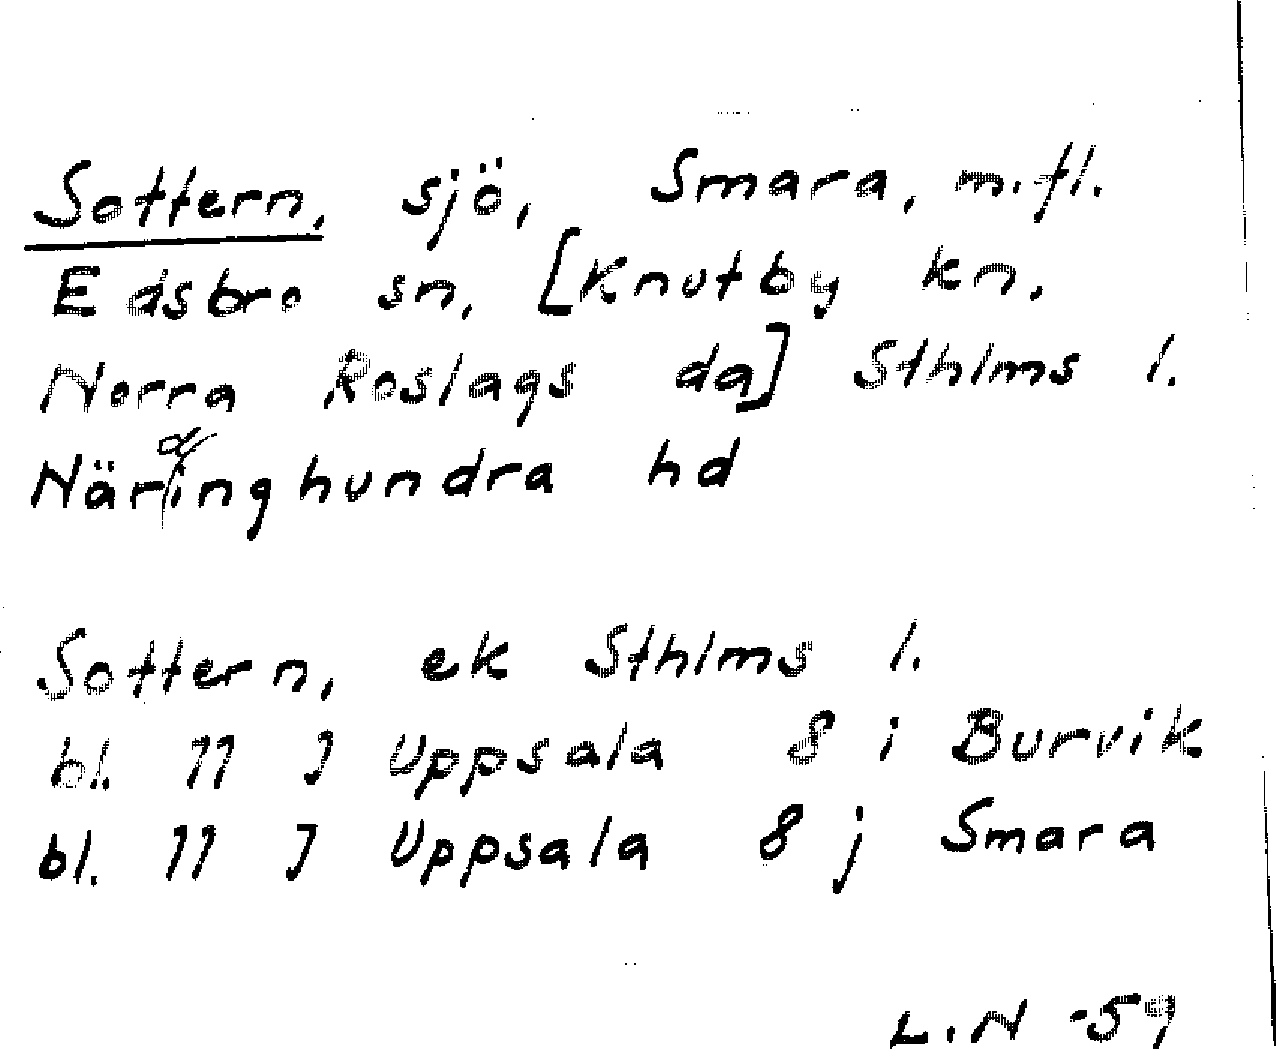 Sottern, sjö, Smara, m.fl.
Edsbro sn. [Knutby kn.
Norra Roslags da] Sthlms l.
Närdinghundra hd
Sottern, ek Sthlms l.
bl. 11 J Uppsala 8 i Burvik
bl. 11 J Uppsala 8 j Smara
L.N -59